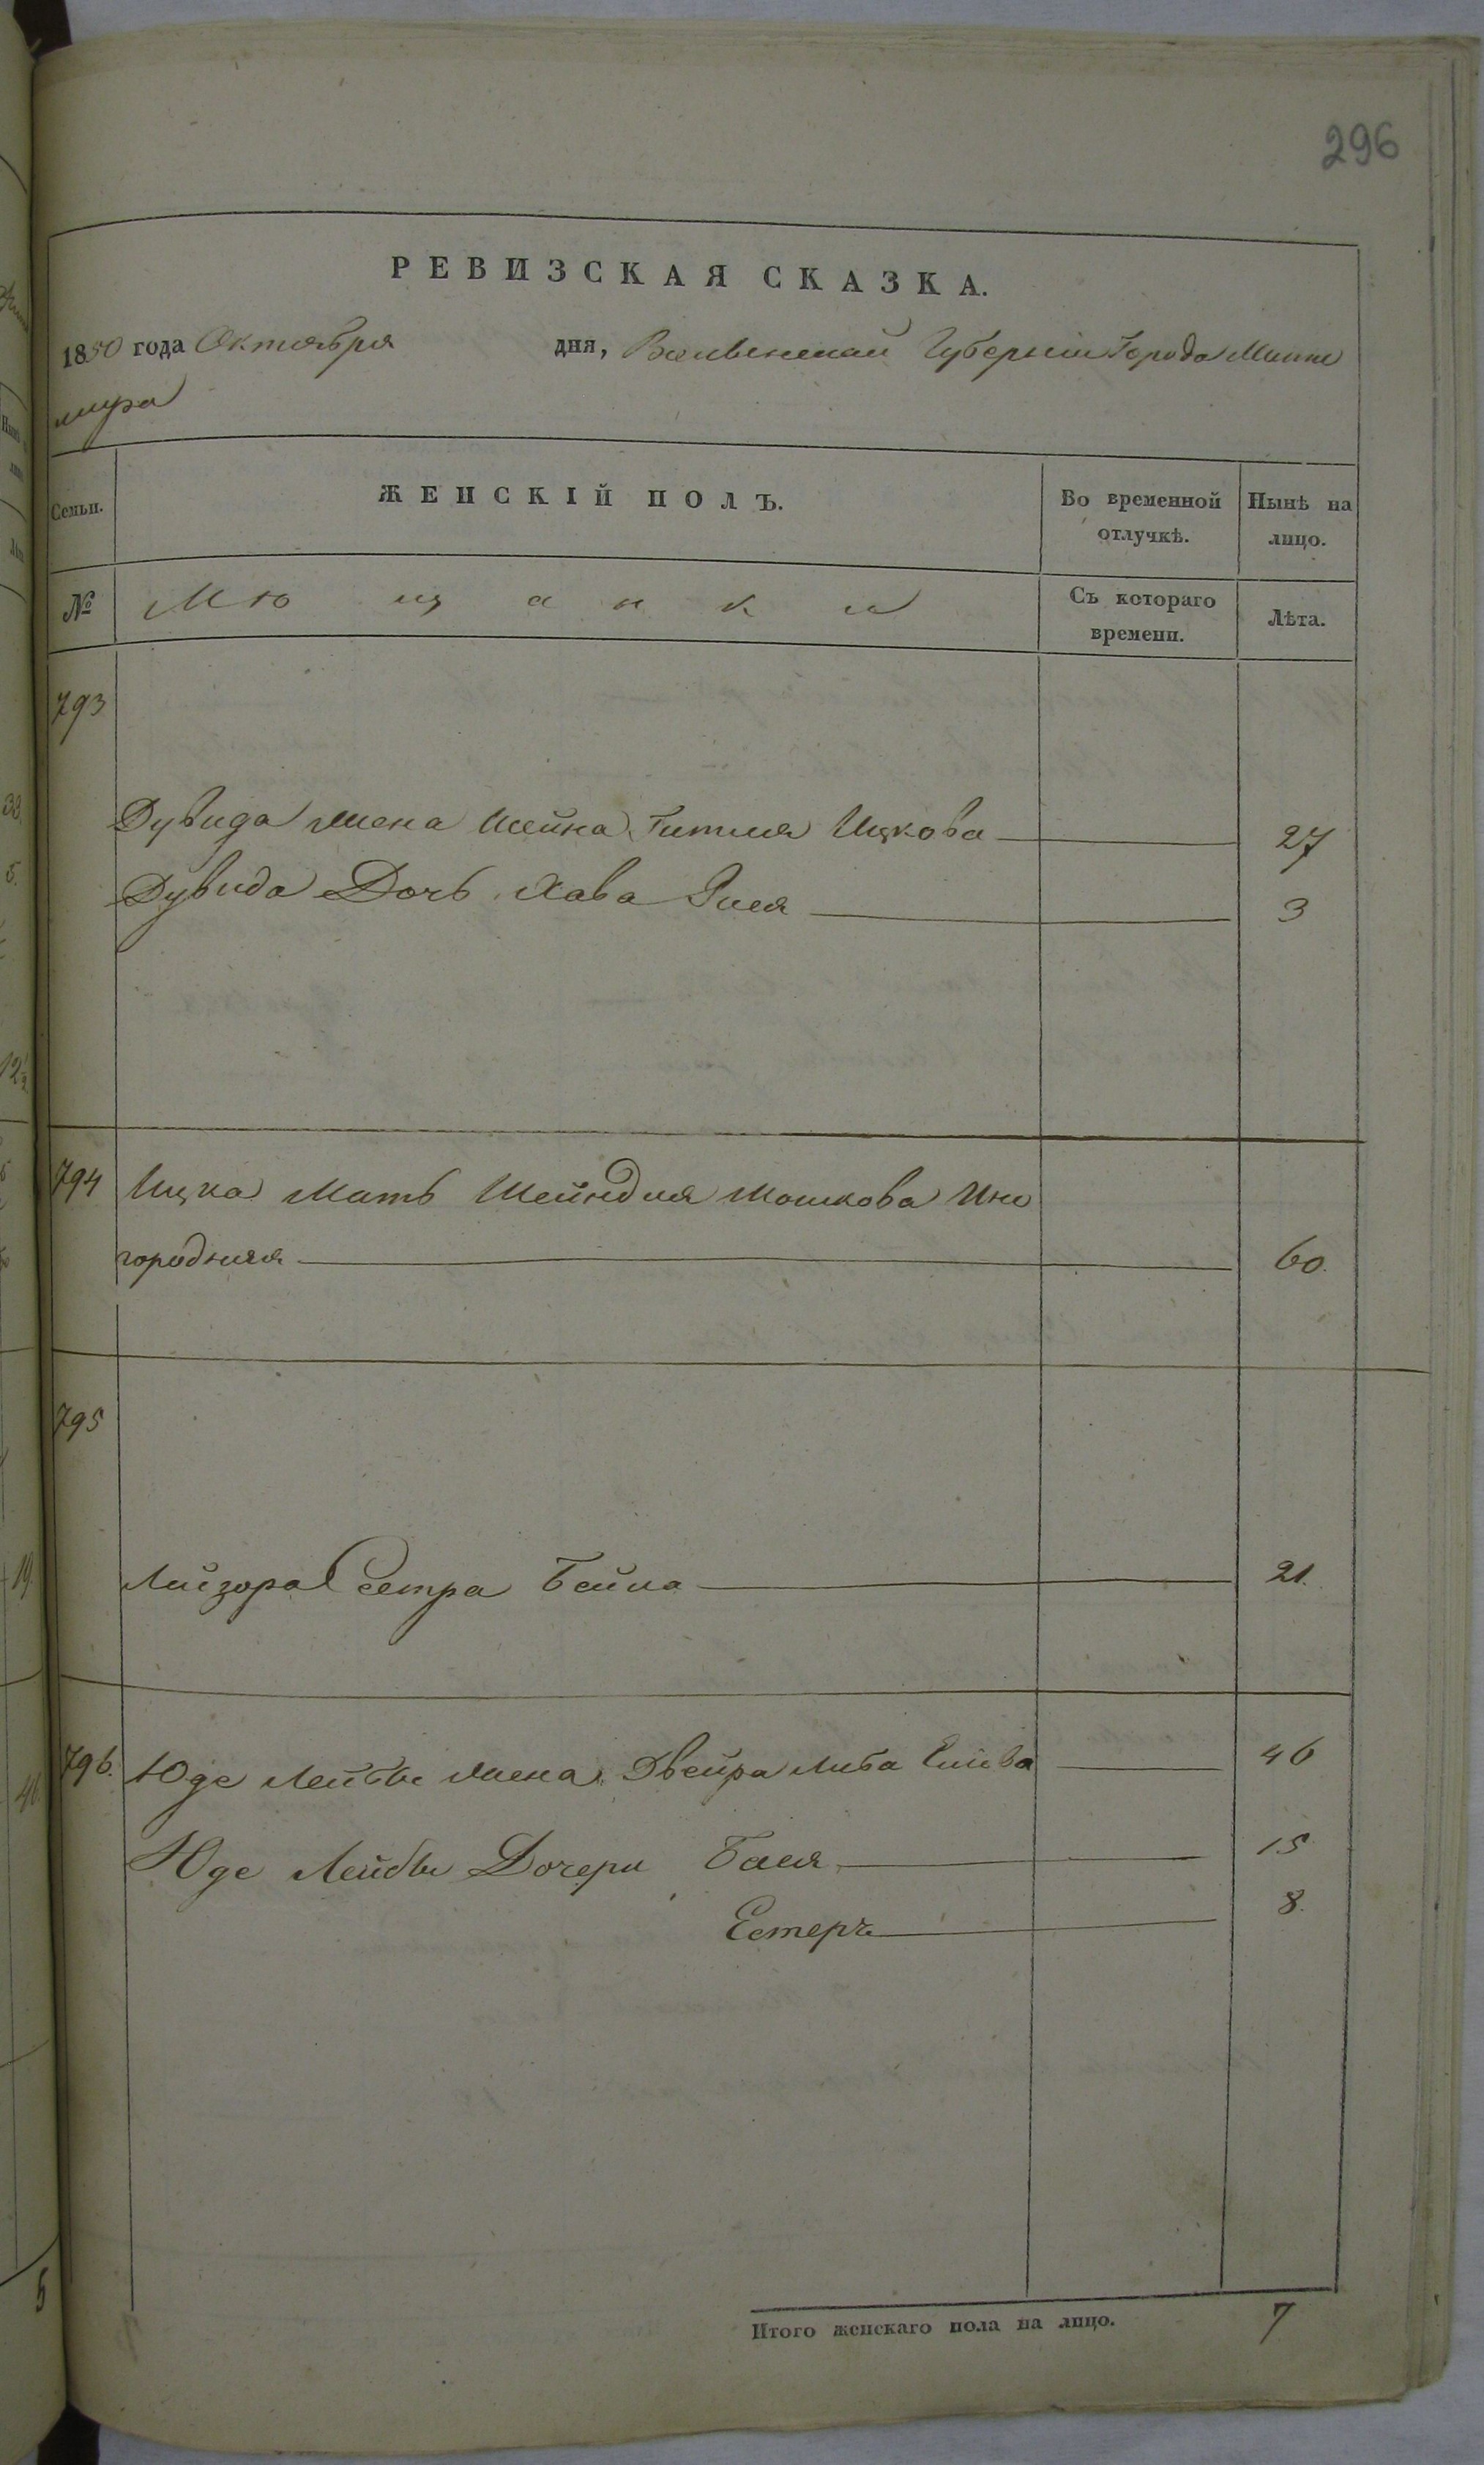 296
РЕВИЗСКАЯ СКАЗКА.
1850 года Октября дня, Волынской Губернiи Города
Семьи. ЖЕНСКIЙ ПОЛЪ. Во временной отлучкѣ. Нынѣ на лицо.
№ Мѣщанки Съ котораго времени. Лѣта.
793
Дувида жена Шейна Гитля Ицкова 27
Дувида Дочь Хава 3
794 Ицка Мать Шейндля Мошкова Ино
городняя 60.
795
Лейзора Сестра Бейла 21.
796. Юде Лейбы жена Двейра Либа 46
Юде Лейбы Дочери Бася 15
Естеръ 8.
Итого женскаго пола на лицо. 7